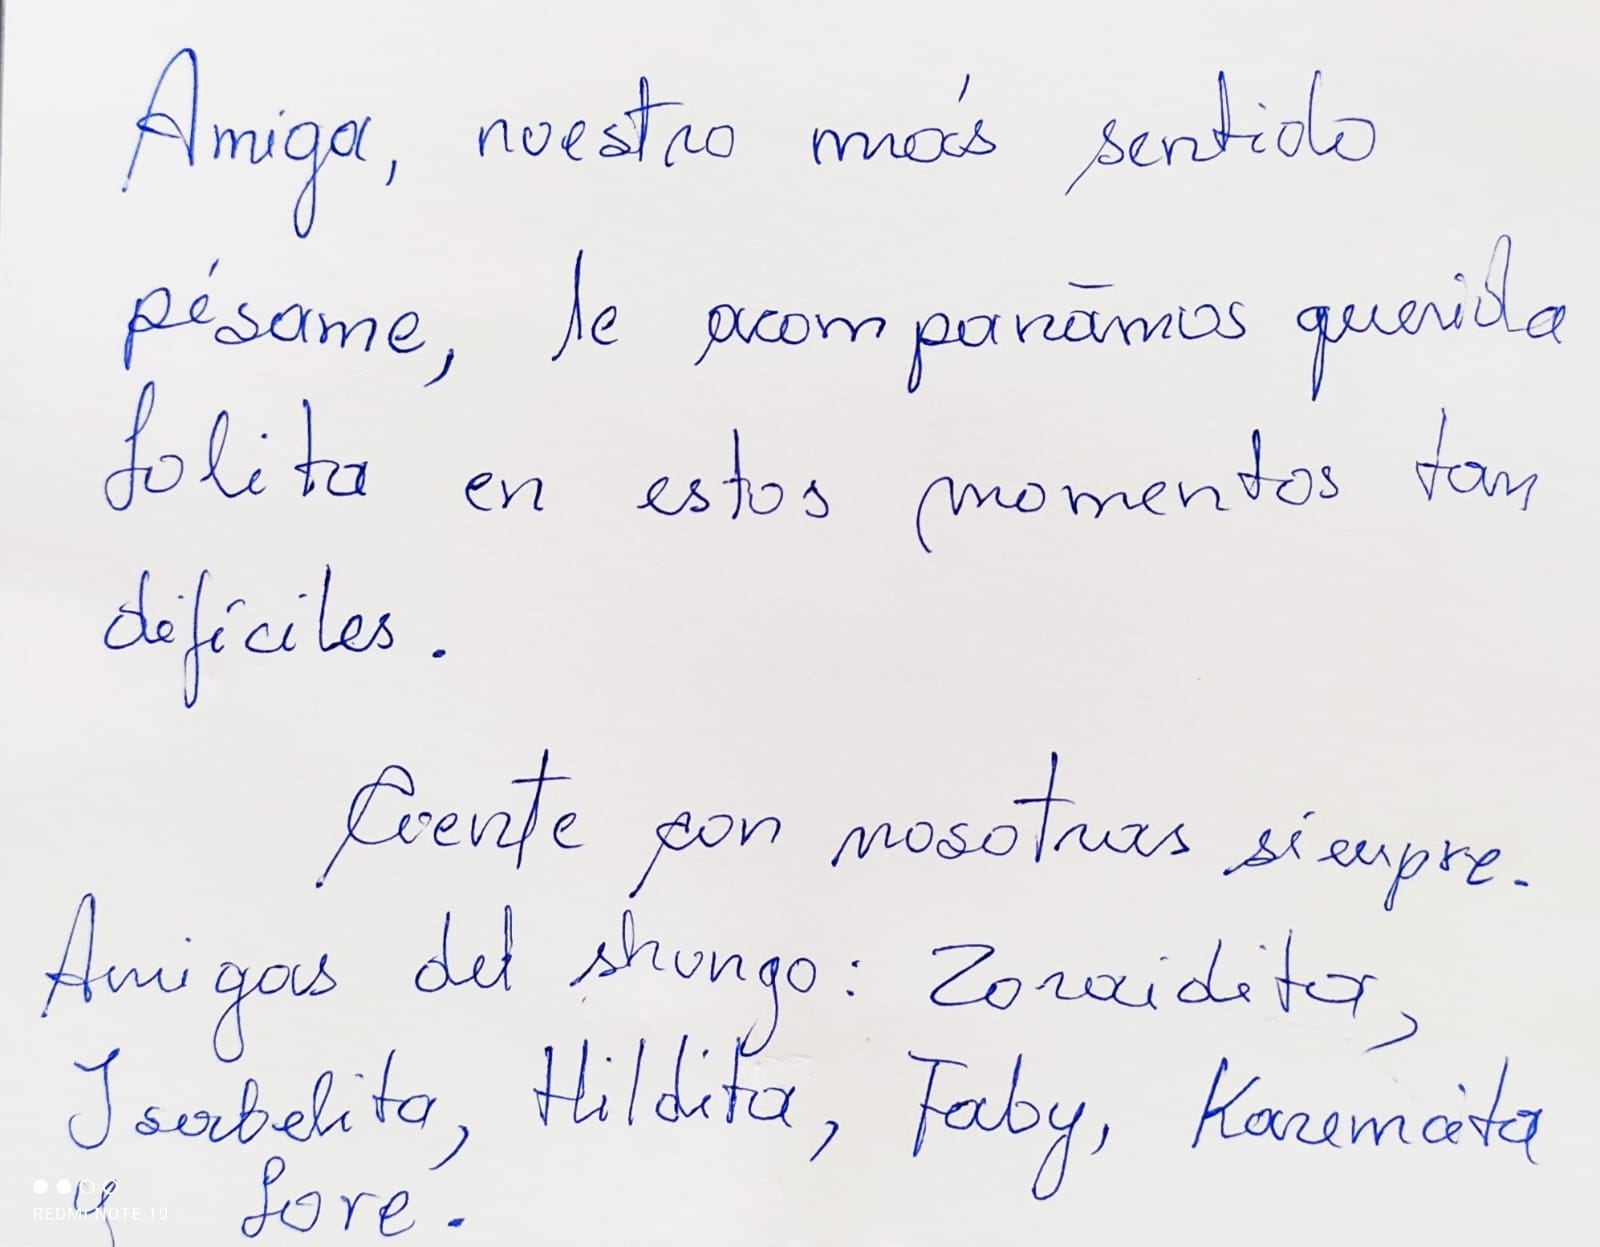 Amiga, nuestro más sentido
pésame, le acompañamos querida
Lolita en estos momentos tan
difíciles.
Cuente con nosotras siempre.
Amigas del shungo: Zoraidita,
Isabelita, Hildita, Faby, Karemcita
y Lore.
REDMI NOTE 10